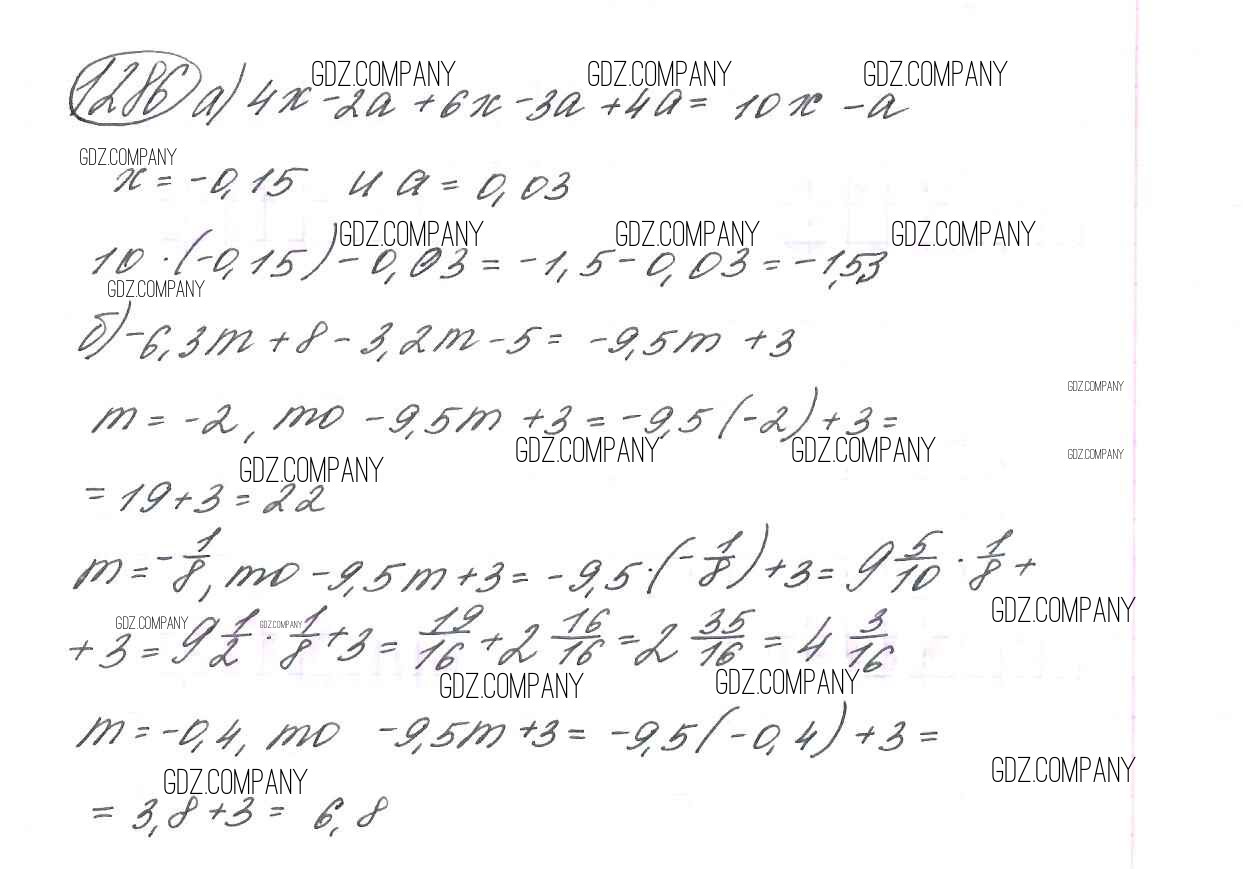 GDZ.COMPANY GDZ.COMPANY GDZ.COMPANY
1286 а) 4x - 2a + 6x - 3a + 4a = 10x - a
GDZ.COMPANY
x = -0,15 и a = 0,03
GDZ.COMPANY GDZ.COMPANY GDZ.COMPANY
10 · (-0,15) - 0,03 = -1,5 - 0,03 = -1,53
GDZ.COMPANY
б) -6,3m + 8 - 3,2m - 5 = -9,5m + 3
GDZ.COMPANY
m = -2, то -9,5m + 3 = -9,5(-2) + 3 =
GDZ.COMPANY GDZ.COMPANY GDZ.COMPANY
GDZ.COMPANY
= 19 + 3 = 22
m = -1/8, то -9,5m + 3 = -9,5 · (-1/8) + 3 = 9 5/10 · 1/8 +
GDZ.COMPANY GDZ.COMPANY GDZ.COMPANY
+ 3 = 9 1/2 · 1/8 + 3 = 19/16 + 2 16/16 = 2 35/16 = 4 3/16
GDZ.COMPANY GDZ.COMPANY
m = -0,4, то -9,5m + 3 = -9,5(-0,4) + 3 =
GDZ.COMPANY GDZ.COMPANY
= 3,8 + 3 = 6,8